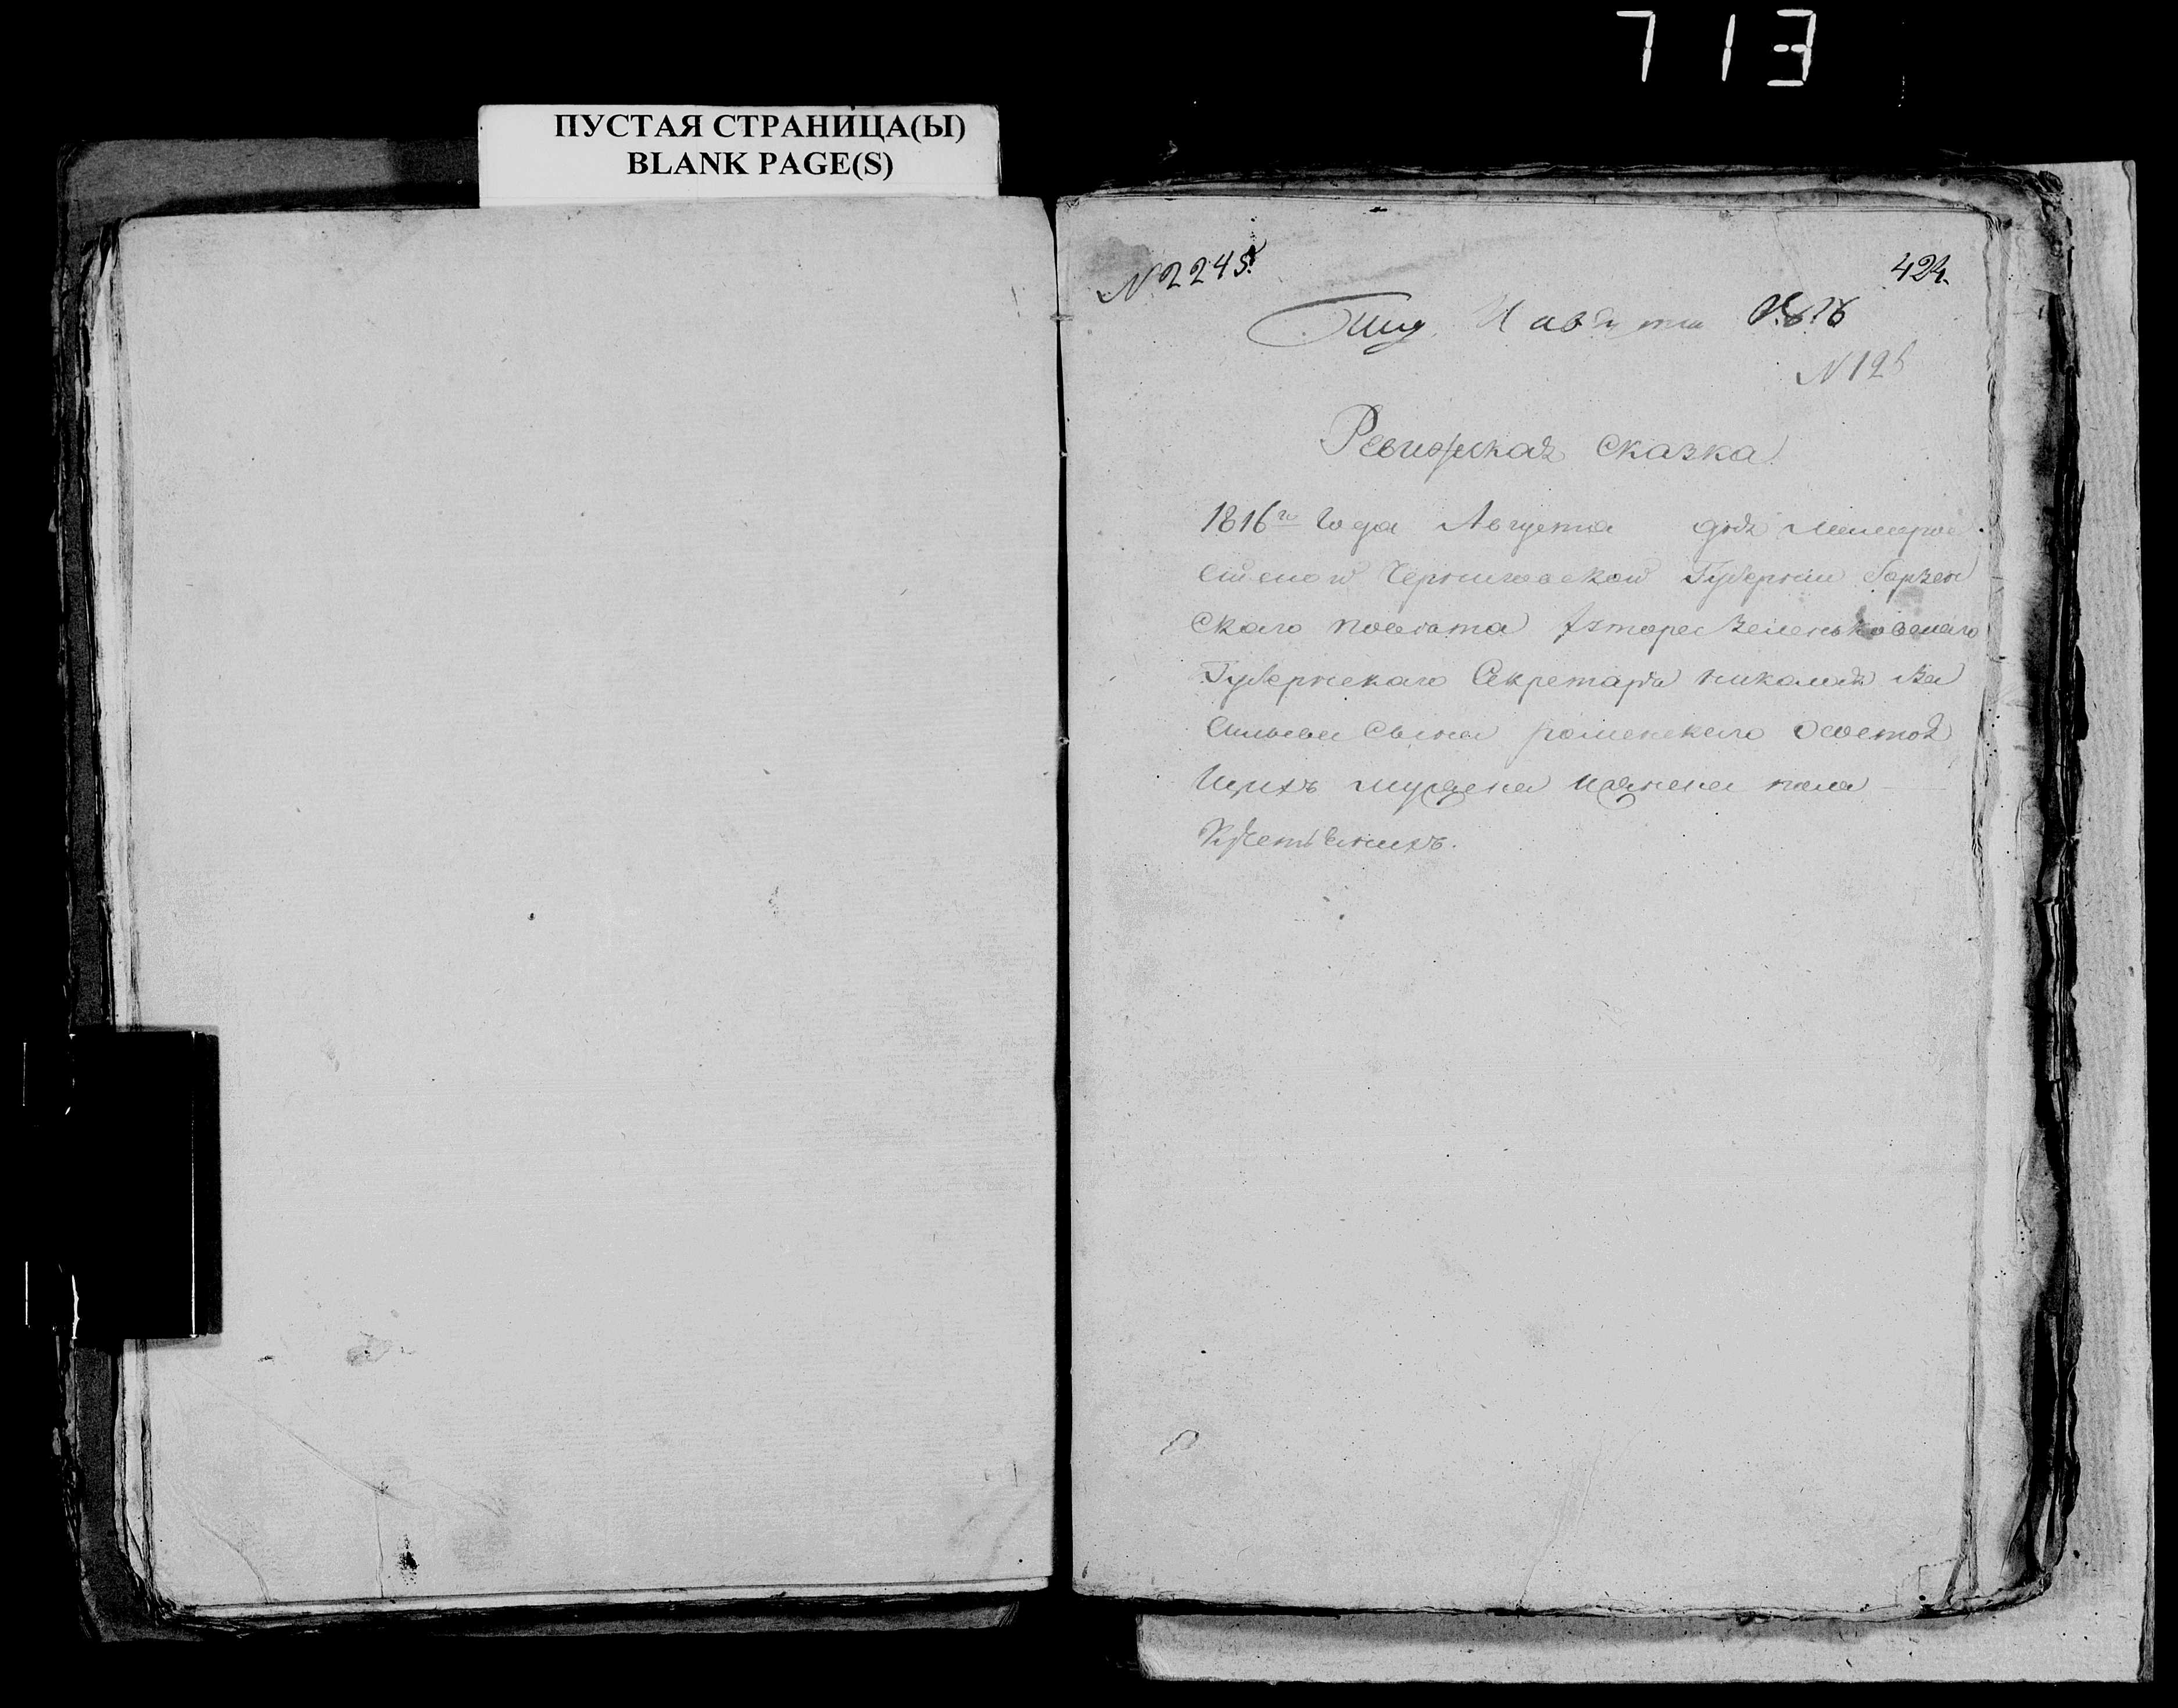 713
ПУСТАЯ СТРАНИЦА(Ы)
BLANK PAGE(S)
№ 2245
424.
августа 1816
№ 12
Ревижская сказка
1816го года Августа дня Малорос
сийской Черниговской Губернии Борзен
ского повета
Губернского Секретаря николая Ва
сильева Сына раменского состоя
щихъ мужеска иженска пола